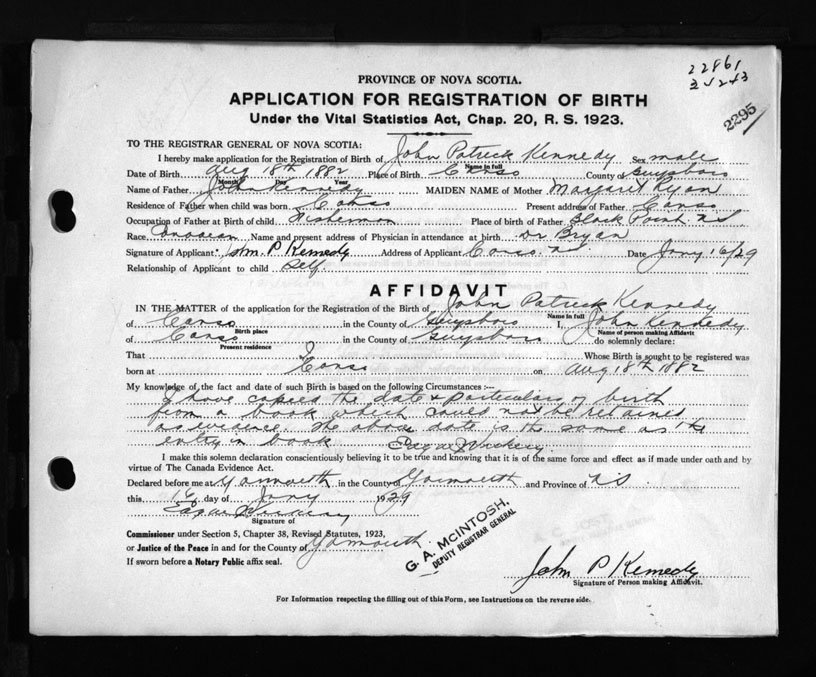 22861
2295
PROVINCE OF NOVA SCOTIA.
APPLICATION FOR REGISTRATION OF BIRTH
Under the Vital Statistics Act, Chap. 20, R. S. 1923.
TO THE REGISTRAR GENERAL OF NOVA SCOTIA:
I hereby make application for the Registration of Birth of John Patrick Kennedy Sex male
Name in full
Date of Birth Aug 18th 1882 Place of Birth Canso County of Guysboro
Month Year
Name of Father John Kennedy MAIDEN NAME of Mother Margaret Ryan
Residence of Father when child was born Canso Present address of Father Canso
Occupation of Father at Birth of child Fisherman Place of birth of Father Black Point. NS
Race Canadian Name and present address of Physician in attendance at birth Dr Bryan
Signature of Applicant P Kennedy Address of Applicant Canso. NS Date Jany 16/29
Relationship of Applicant to child Self.
AFFIDAVIT
IN THE MATTER of the application for the Registration of the Birth of John Patrick Kennedy
Name in full
of Canso in the County of Guysboro I, John Kennedy
Birth place Name of person making Affidavit
of Canso in the County of Guysboro do solemnly declare:
Present residence
That I Whose Birth is sought to be registered was
born at Canso on Aug 18th 1882
My knowledge of the fact and date of such Birth is based on the following Circumstances :—
I have copied the date & particulars of birth
from a book which could not be retained
as evidence. The above date is the same as the
entry in book
I make this solemn declaration conscientiously believing it to be true and knowing that it is of the same force and effect as if made under oath and by
virtue of The Canada Evidence Act.
Declared before me at Yarmouth in the County of Yarmouth and Province of NS.
this 16 day of Jany 1929
Signature of
Commissioner under Section 5, Chapter 38, Revised Statutes, 1923,
or Justice of the Peace in and for the County of Yarmouth.
If sworn before a Notary Public affix seal.
G. A. McINTOSH,
DEPUTY REGISTRAR GENERAL
John P Kennedy
Signature of Person making Affidavit.
For Information respecting the filling out of this Form, see Instructions on the reverse side.